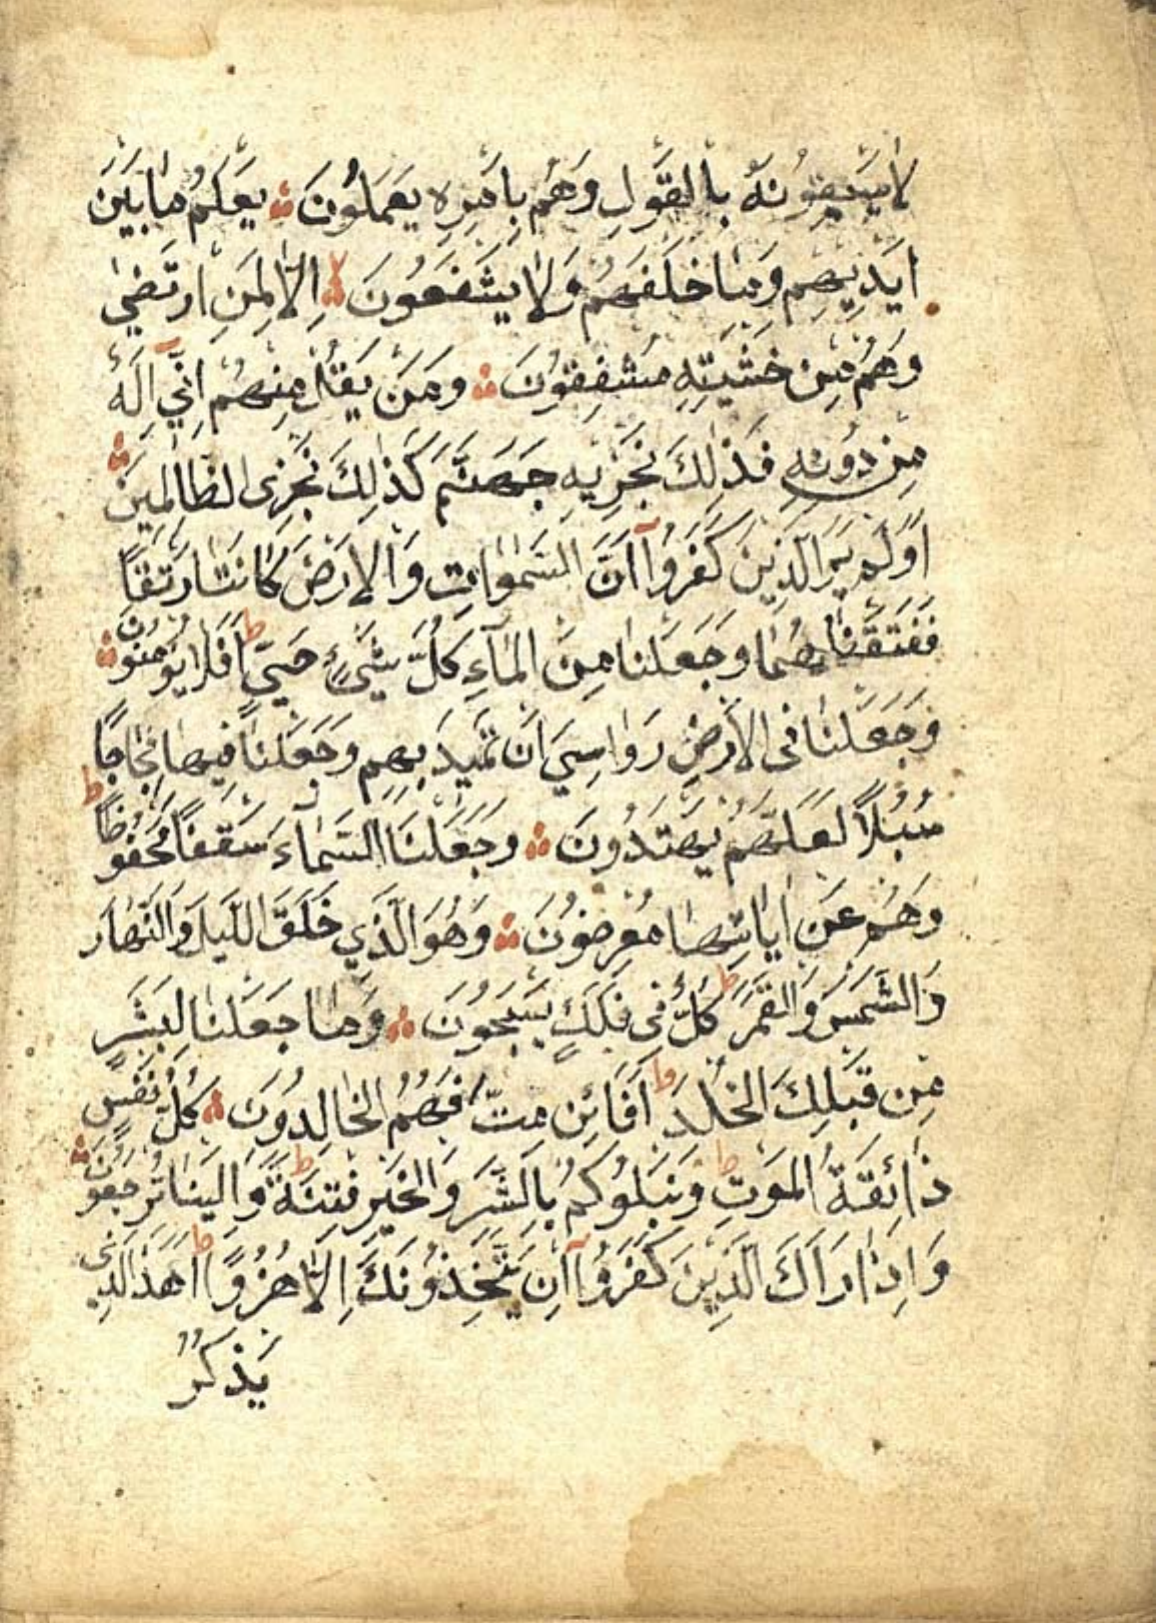 لَا يَسْبِقُونَهُ بِالْقَوْلِ وَهُمْ بِاَمْرِهِ يَعْمَلُونَ ۞ يَعْلَمُ مَا بَيْنَ
اَيْدِيهِمْ وَمَا خَلْفَهُمْ وَلَا يَشْفَعُونَ ۞ لا اِلَّا لِمَنِ ارْتَضٰى
وَهُمْ مِنْ خَشْيَتِهِ مُشْفِقُونَ ۞ وَمَنْ يَقُلْ مِنْهُمْ اِنّٓي اِلٰهٌ
مِنْ دُونِهِ فَذٰلِكَ نَجْزِيهِ جَهَنَّمَ كَذٰلِكَ نَجْزِى الظَّالِمِينَ ۞
اَوَلَمْ يَرَ الَّذِينَ كَفَرُوٓا اَنَّ السَّمٰوَاتِ وَالْاَرْضَ كَانَتَا رَتْقًا
فَفَتَقْنَاهُمَا وَجَعَلْنَا مِنَ الْمَآءِ كُلَّ شَيْءٍ حَيٍّ ط اَفَلَا يُؤْمِنُونَ ۞
وَجَعَلْنَا فِى الْاَرْضِ رَوَاسِيَ اَنْ تَمِيدَ بِهِمْ وَجَعَلْنَا فِيهَا فِجَاجًا
سُبُلًا لَعَلَّهُمْ يَهْتَدُونَ ۞ وَجَعَلْنَا السَّمَآءَ سَقْفًا مَحْفُوظًا ط
وَهُمْ عَنْ اٰيَاتِهَا مُعْرِضُونَ ۞ وَهُوَ الَّذِي خَلَقَ اللَّيْلَ وَالنَّهَارَ
وَالشَّمْسَ وَالْقَمَرَ ط كُلٌّ فِى فَلَكٍ يَسْبَحُونَ ۞ وَمَا جَعَلْنَا لِبَشَرٍ
مِنْ قَبْلِكَ الْخُلْدَ ط اَفَائِنْ مِتَّ فَهُمُ الْخَالِدُونَ ۞ كُلُّ نَفْسٍ
ذَائِقَةُ الْمَوْتِ ط وَنَبْلُوكُمْ بِالشَّرِّ وَالْخَيْرِ فِتْنَةً ط وَاِلَيْنَا تُرْجَعُونَ ۞
وَاِذَا رَاٰكَ الَّذِينَ كَفَرُوٓا اِنْ يَتَّخِذُونَكَ اِلَّا هُزُوًا ط اَهٰذَا الَّذِى
يَذْكُرُ